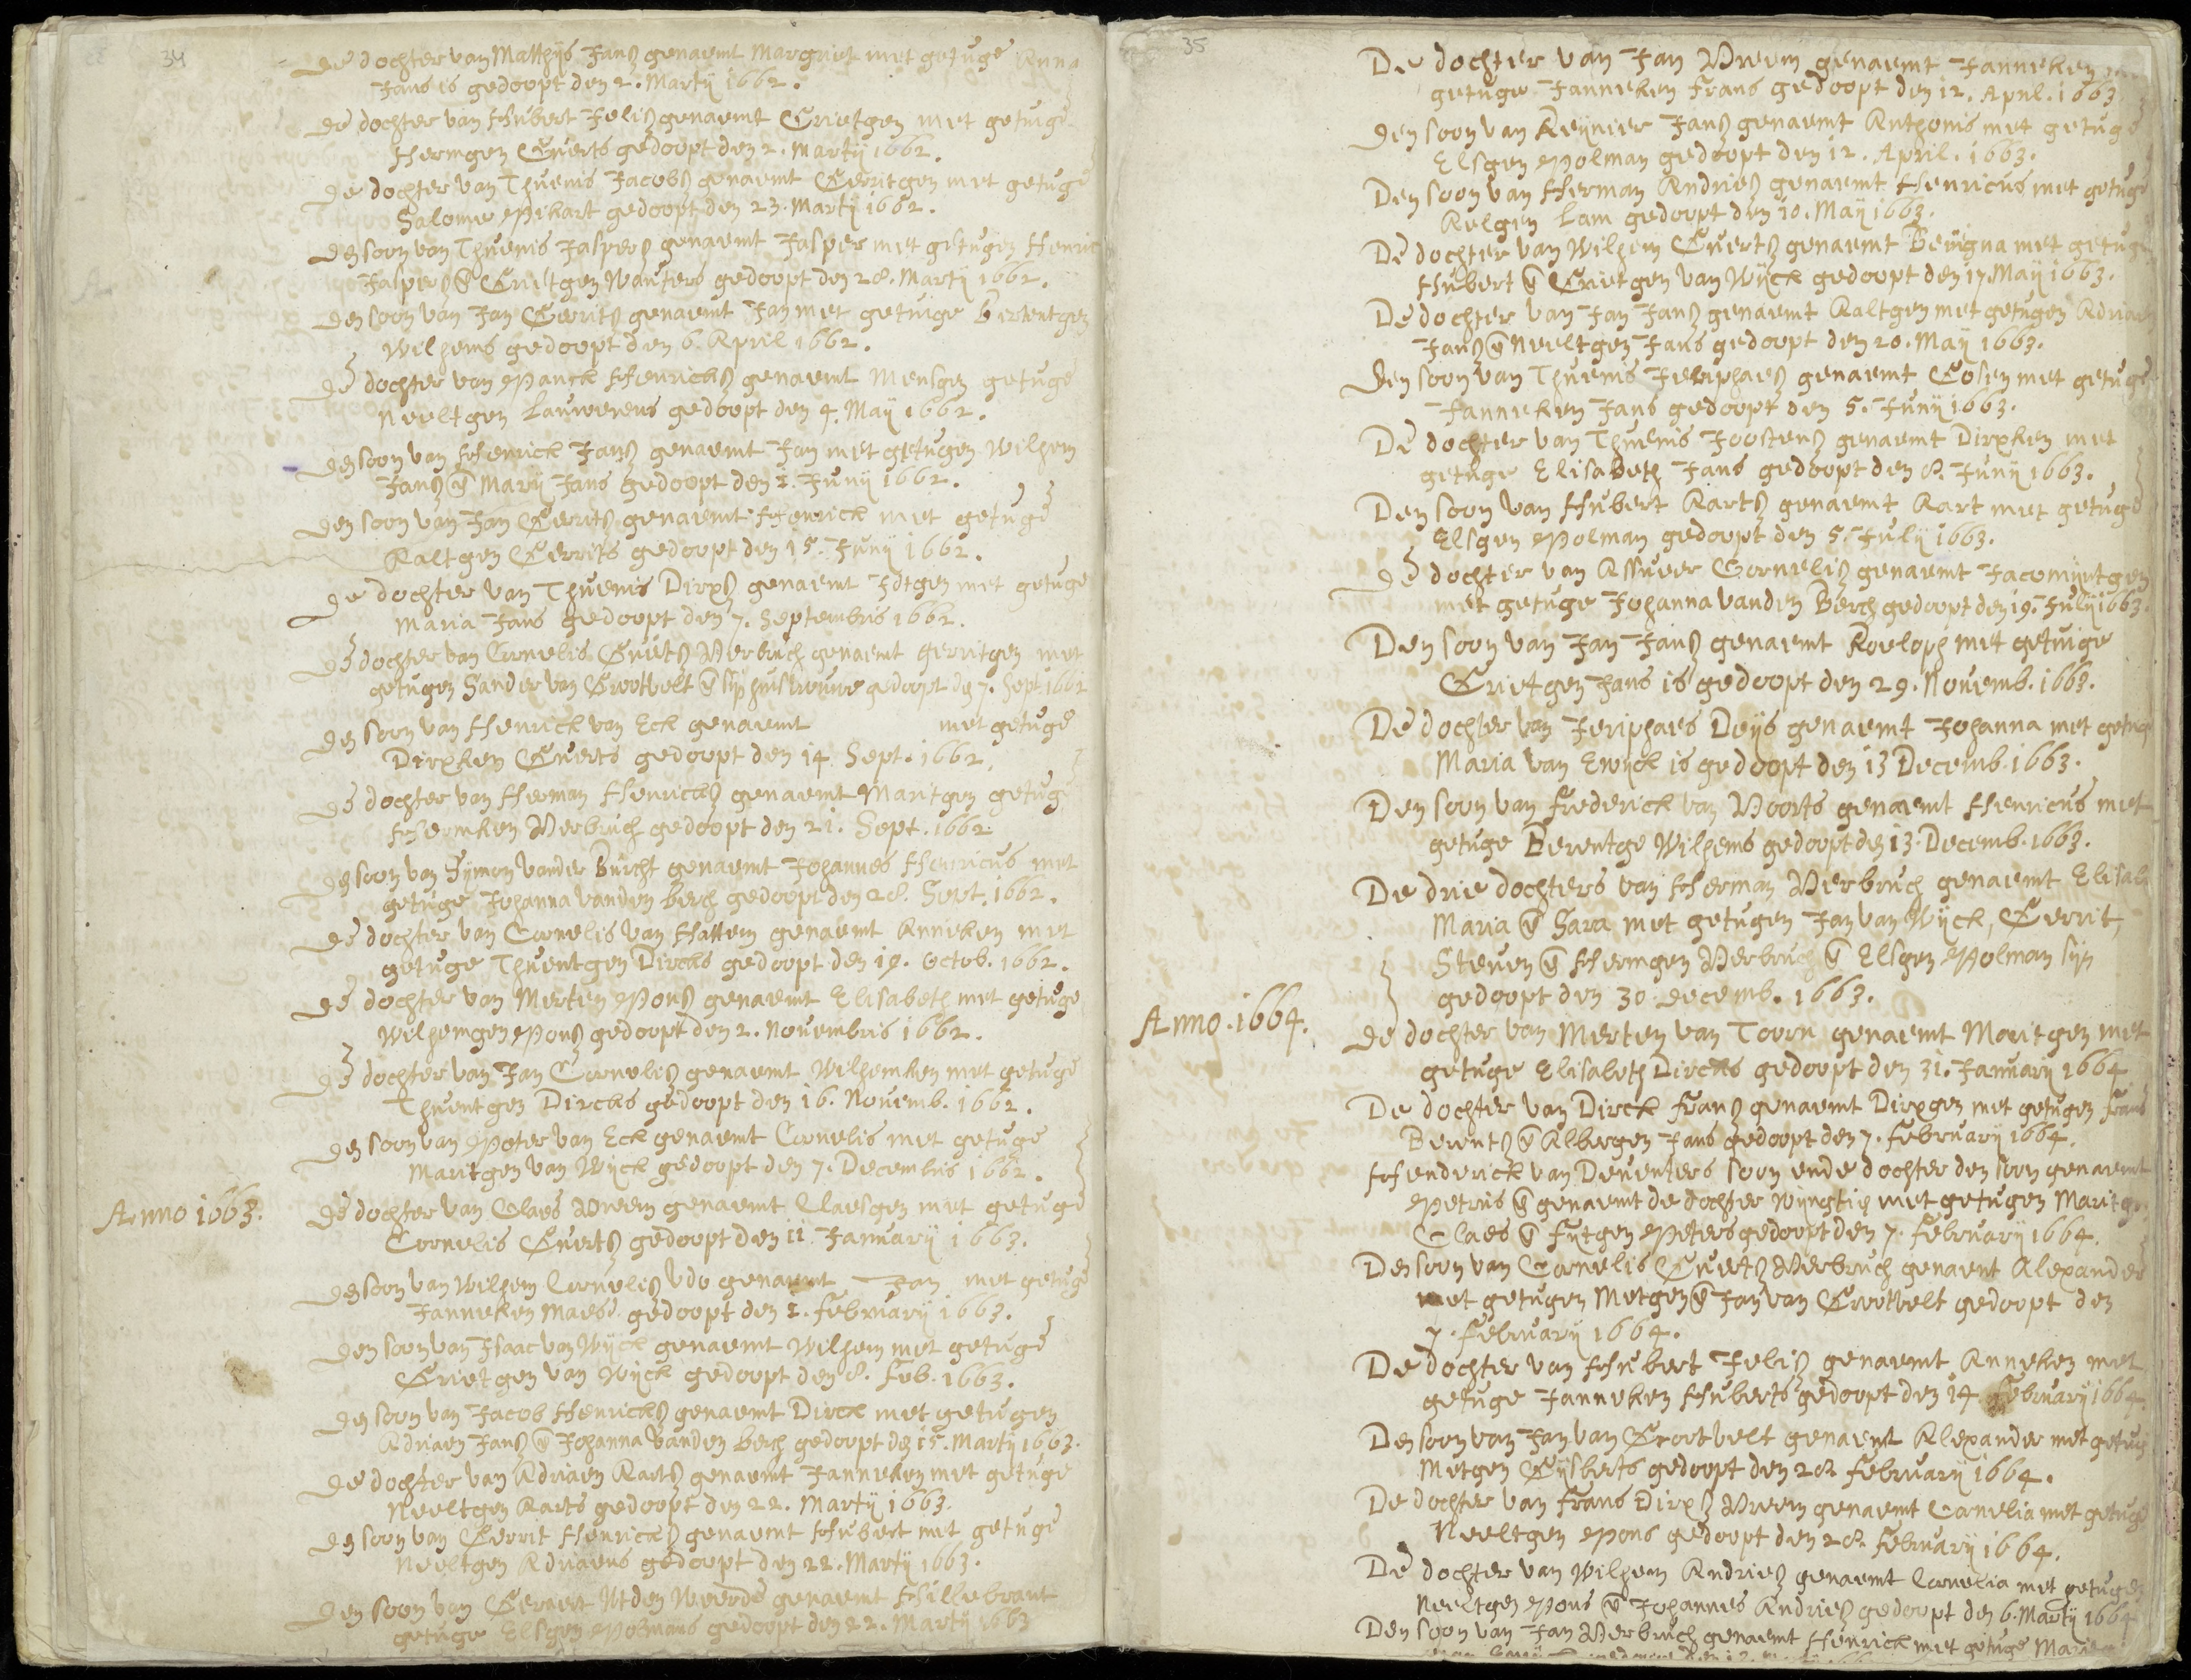 34
De dochter van Matthijs Jans genaemt Margriet met getuge Anna
Jans is gedoopt den 2. Martij 1662.
De dochter van Hubert Jelis genaemt Grietgen met getuige
Hermgen Everts gedoopt den 2. Martij 1662.
De dochter van Thuenis Jacobs genaemt Gerritgen met getuge
Salome Pikart gedoopt den 23. Martij 1662.
Den soon van Thuenis Jaspers genaemt Jasper met getugen Henric
Jaspers en Grietgen Wauters gedoopt den 28. Martij 1662.
Den soon van Jan Gerrits genaemt Jan met getuige Berentgen
Wilhems gedoopt den 6. April 1662.
De dochter van Panck Henricks genaemt Mensgen getuge
Neeltgen Lauwerens gedoopt den 4. Maij 1662.
Den soon van Henrick Jans genaemt Jan met getugen Wilhem
Jans en Marij Jans gedoopt den 1. Junij 1662.
Den soon van Jan Gerrits genaemt Henrick met getuge
Aaltgen Gerrits gedoopt den 15. Junij 1662.
De dochter van Thuenis Dirxs genaemt Idtgen met getuge
Maria Jans gedoopt den 7. Septembris 1662.
De dochter van Cornelis Everts Verbruch genaemt Gerritgen met
getugen Sander van Grootvelt en sijn huisvrouwe gedoopt den 7. Sept. 1662
Den soon van Henrick van Eck genaemt met getuge
Dirxken Everts gedoopt den 14. Sept. 1662.
De dochter van Herman Henricks genaemt Maritgen getuge
Hermken Verbruch gedoopt den 21. Sept. 1662.
Den soon van Symon vander Burcht genaemt Johannes Henricus met
getuge Johanna vanden Berch gedoopt den 28. Sept. 1662.
De dochter van Cornelis van Hattem genaemt Anneken met
getuge Thuentgen Dircks gedoopt den 19. Octob. 1662.
De dochter van Merten Pons genaemt Elisabeth met getuge
Wilhemgen Pons gedoopt den 2. Novembris 1662.
De dochter van Jan Cornelis genaemt Wilhemken met getuge
Thuentgen Dircks gedoopt den 16. Novemb. 1662.
Den soon van Peter van Eck genaemt Cornelis met getuge
Maritgen van Wijck gedoopt den 7. Decembris 1662.
Anno 1663.
De dochter van Claes Vreem genaemt Claesgen met getuge
Cornelis Everts gedoopt den 11. Januarij 1663.
Den soon van Wilhem Cornelis Udo genaemt Jan met getuge
Janneken Maes gedoopt den 1. Februarij 1663.
Den soon van Isaac van Wijck genaemt Wilhem met getuge
Grietgen van Wijck gedoopt den 8. Feb. 1663.
Den soon van Jacob Henricks genaemt Dirck met getugen
Adriaen Jans en Johanna vanden Berch gedoopt den 15. Martij 1663.
De dochter van Adriaen Aarts genaemt Janneken met getuge
Neeltgen Aarts gedoopt den 22. Martij 1663.
Den soon van Gerrit Henricks genaemt Hubert met getuge
Neeltgen Adriaens gedoopt den 22. Martij 1663.
Den soon van Gernert Utden Weerde genaemt Hillebrant
getuge Elsgen Polmans gedoopt den 22. Martij 1663
35
De dochter van Jan Vreem genaemt Janneken
getuge Janneken Frans gedoopt den 12. April. 1663.
Den soon van Reijnier Jans genaemt Anthonis met getuge
Elsgen Polman gedoopt den 12. April. 1663.
Den soon van Herman Andries genaemt Henricus met getuge
Aelgen Lam gedoopt den 10. Maij 1663.
De dochter van Wilhem Everts genaemt Beuigna met getuge
Hubert en Grietgen van Wijck gedoopt den 17. Maij 1663.
De dochter van Jan Jans genaemt Aaltgen met getugen Adriaen
Jans en Neeltgen Jans gedoopt den 20. Maij 1663.
Den soon van Thuenis Jeriphaes genaemt Gosen met getuge
Janneken Jans gedoopt den 5. Junij 1663.
De dochter van Thuenis Joostens genaemt Dirxken met
getuge Elisabeth Jans gedoopt den 8. Junij 1663.
Den soon van Hubert Aarts genaemt Aart met getuge
Elsgen Polman gedoopt den 5. Julij 1663.
De dochter van Assueer Cornelis genaemt Jacomijntgen
met getuge Johanna vanden Berch gedoopt den 19. Julij 1663.
Den soon van Jan Jans genaemt Roeloph met getuige
Grietgen Jans is gedoopt den 29. Novemb. 1663.
De dochter van Jeriphaes Deijs genaemt Johanna met getuge
Maria van Ewijck is gedoopt den 13 Decemb. 1663.
Den soon van Frederick van Voorts genaemt Henricus met
getuge Berentge Wilhems gedoopt den 13. Decemb. 1663.
De drie dochters van Herman Verbruch genaemt Elisab
Maria en Sara met getugen Jan van Wijck, Gerrit,
Steven en Hermgen Verbruch en Elsgen Polman sijn
gedoopt den 30 decemb. 1663.
Anno. 1664.
De dochter van Merten van Toorn genaemt Maritgen met
getuge Elisabeth Dircks gedoopt den 31. Januarij 1664
De dochter van Dirck Frans genaemt Dirxgen met getugen Frans
Berents en Albergen Jans gedoopt den 7. Februarij 1664.
Henderick van Deventers soon ende dochter den soon genaemt
Petrus en genaemt de dochter Wijnstie met getugen Maritgen
Claes en Fijtgen Peters gedoopt den 7. Februarij 1664.
Den soon van Cornelis Everts Verbruch genaemt Alexander
met getugen Metgen en Jan van Grootvelt gedoopt den
7. Februarij 1664.
De dochter van Hubert Jelis genaemt Anneken met
getuge Janneken Huberts gedoopt den 14 Februarij 1664.
Den soon van Jan van Grootvelt genaemt Alexander met getuge
Metgen Gijsberts gedoopt den 28 Februarij 1664.
De dochter van Frans Dirxs Vreem genaemt Cornelia met getuge
Neeltgen Pons gedoopt den 28. Februarij 1664.
De dochter van Wilhem Andries genaemt Cornelia met getugen
Neeltgen Pons en Johannes Andries gedoopt den 6. Martij 1664
Den soon van Jan Verbruch genaemt Henrick met getuge